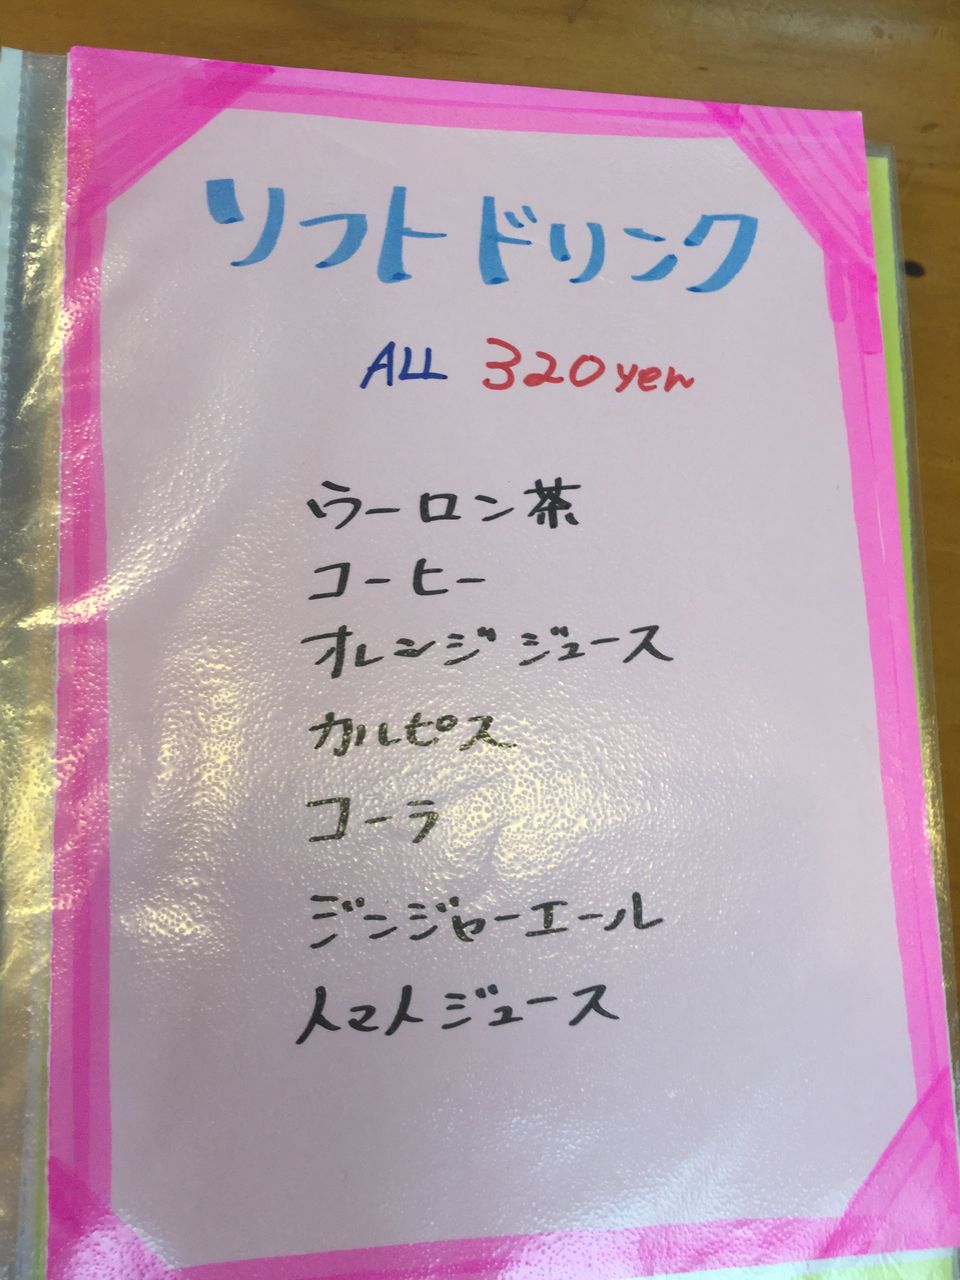 ソフトドリンク
ALL 320yen
ウーロン茶
コーヒー
オレンジジュース
カルピス
コーラ
ジンジャーエール
トマトジュース